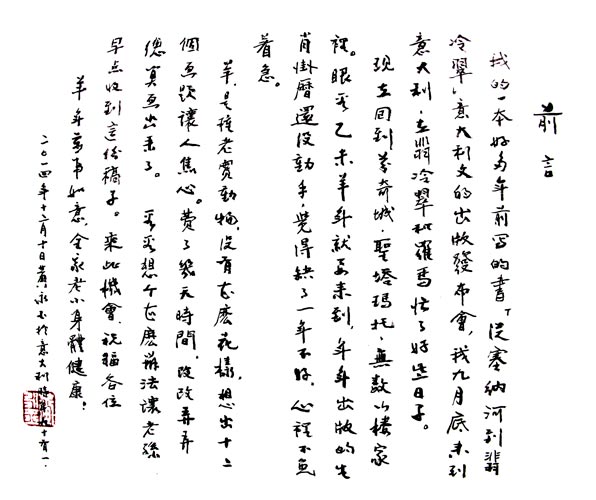 前言
我的一本好多年前写的書『從塞納河到翡
冷翠』意大利文的出版發布會，我九月底来到
意大利，在翡冷翠和羅馬忙了好些日子。
现在回到芬奇城·聖塔瑪托·無数山楼家
裡。眼看乙未羊年就要来到，年年出版的生
肖掛曆還没動手，覺得缺了一年不好，心裡不免
着急。
羊，是種老實動物，没有甚麽花樣，想出十二
個画题讓人焦心。費了幾天時間，改改弄弄
總算画出来了。要想个甚麽辦法讓老孫
早点收到這份稿子。乘此機會，祝福各位
羊年萬事如意，全家老小身體健康！
二〇一四年十二月十日黄永玉於意大利 九十有一